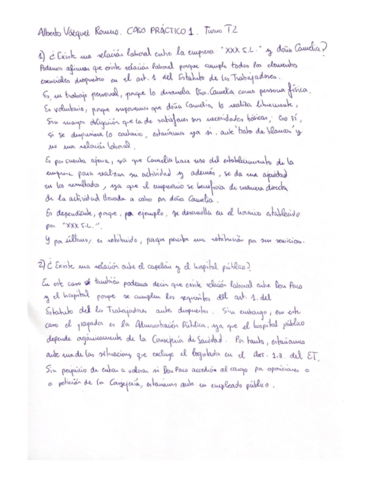 Alberto Vázquez Romero. CASO PRÁCTICO 1. Turno T2
1) ¿Existe una relación laboral entre la empresa "XXX S.L." y doña Camelia?
Podemos afirmar que existe relación laboral porque cumple todos los elementos
esenciales dispuestos en el art. 1 del Estatuto de los Trabajadores.
Es un trabajo personal, porque lo desarrolla Dña. Camelia como persona física.
Es voluntario, porque suponemos que doña Camelia, lo realiza libremente,
sin mayor obligación que la de satisfacer sus necesidades básicas. Eso sí,
si se dispusiera lo contrario, estaríamos ya si. ante "trata de blancas" y
no una relación laboral.
Es por cuenta ajena, ya que Camelia hace uso del establecimiento de la
empresa para realizar su actividad y además, se da una ajenidad
en los resultados, ya que el empresario se beneficia de manera directa
de la actividad llevada a cabo por doña Camelia.
Es dependiente, porque, por ejemplo, se desarrolla en el horario establecido
por "XXX S.L.".
Y por último, es retribuido, porque percibe una retribución por sus servicios.
2) ¿Existe una relación entre el capellán y el hospital público?
En este caso también podemos decir que existe relación laboral entre Don Paco
y el hospital porque se cumplen los requisitos del art. 1 del
Estatuto de los Trabajadores antes dispuestos. Sin embargo, en este
caso el pagador es la Administración Pública, ya que el hospital público
depende orgánicamente de la Consejería de Sanidad. Por tanto, estaríamos
ante una de las situaciones que excluye el legislador en el art. 1.3. del ET.
Sin perjuicio de entrar a valorar si Don Paco accedió al cargo por oposiciones o
a petición de la Consejería, estaríamos ante un empleado público.